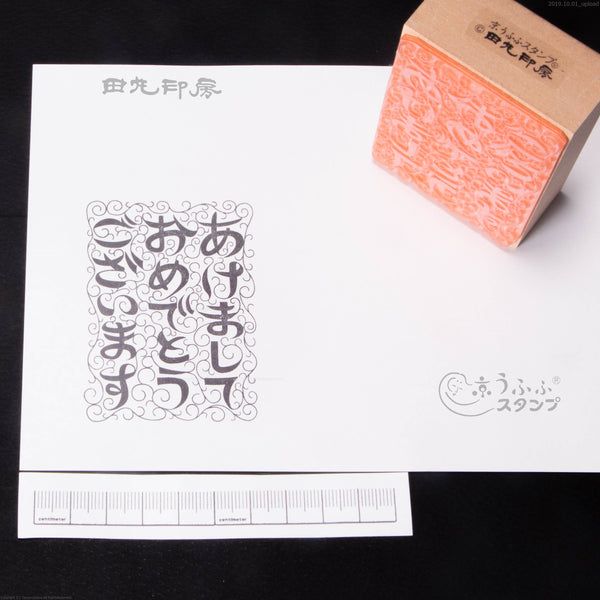 2019.10.01_upload
京うふふスタンプ®
©田丸印房
田丸印房
あけまして
おめでとう
ございます
京うふふ®
スタンプ
centimeter
centimeter